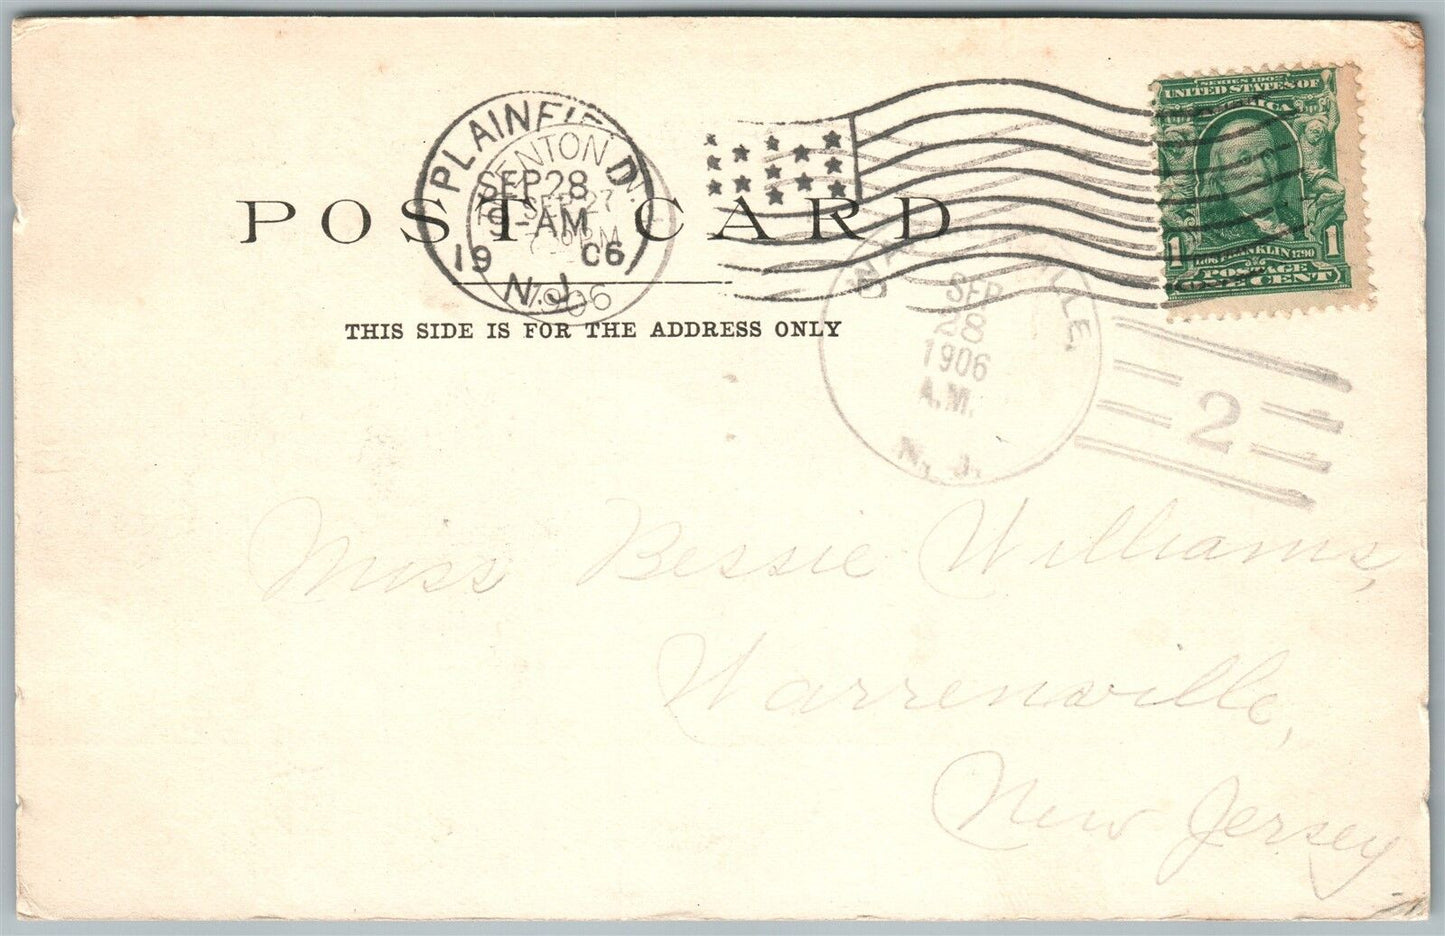 SERIES 1902
UNITED STATES OF
PLAINFIELD
TRENTON
SEP 28
SEP 27
9-AM
1906
N.J.
1906
POST CARD
THIS SIDE IS FOR THE ADDRESS ONLY
FRANKLIN 1790
1 1
POSTAGE
ONE CENT
SEP
28
1906
A.M.
N. J.
2
Miss Bessie Williams,
Warrenville,
New Jersey